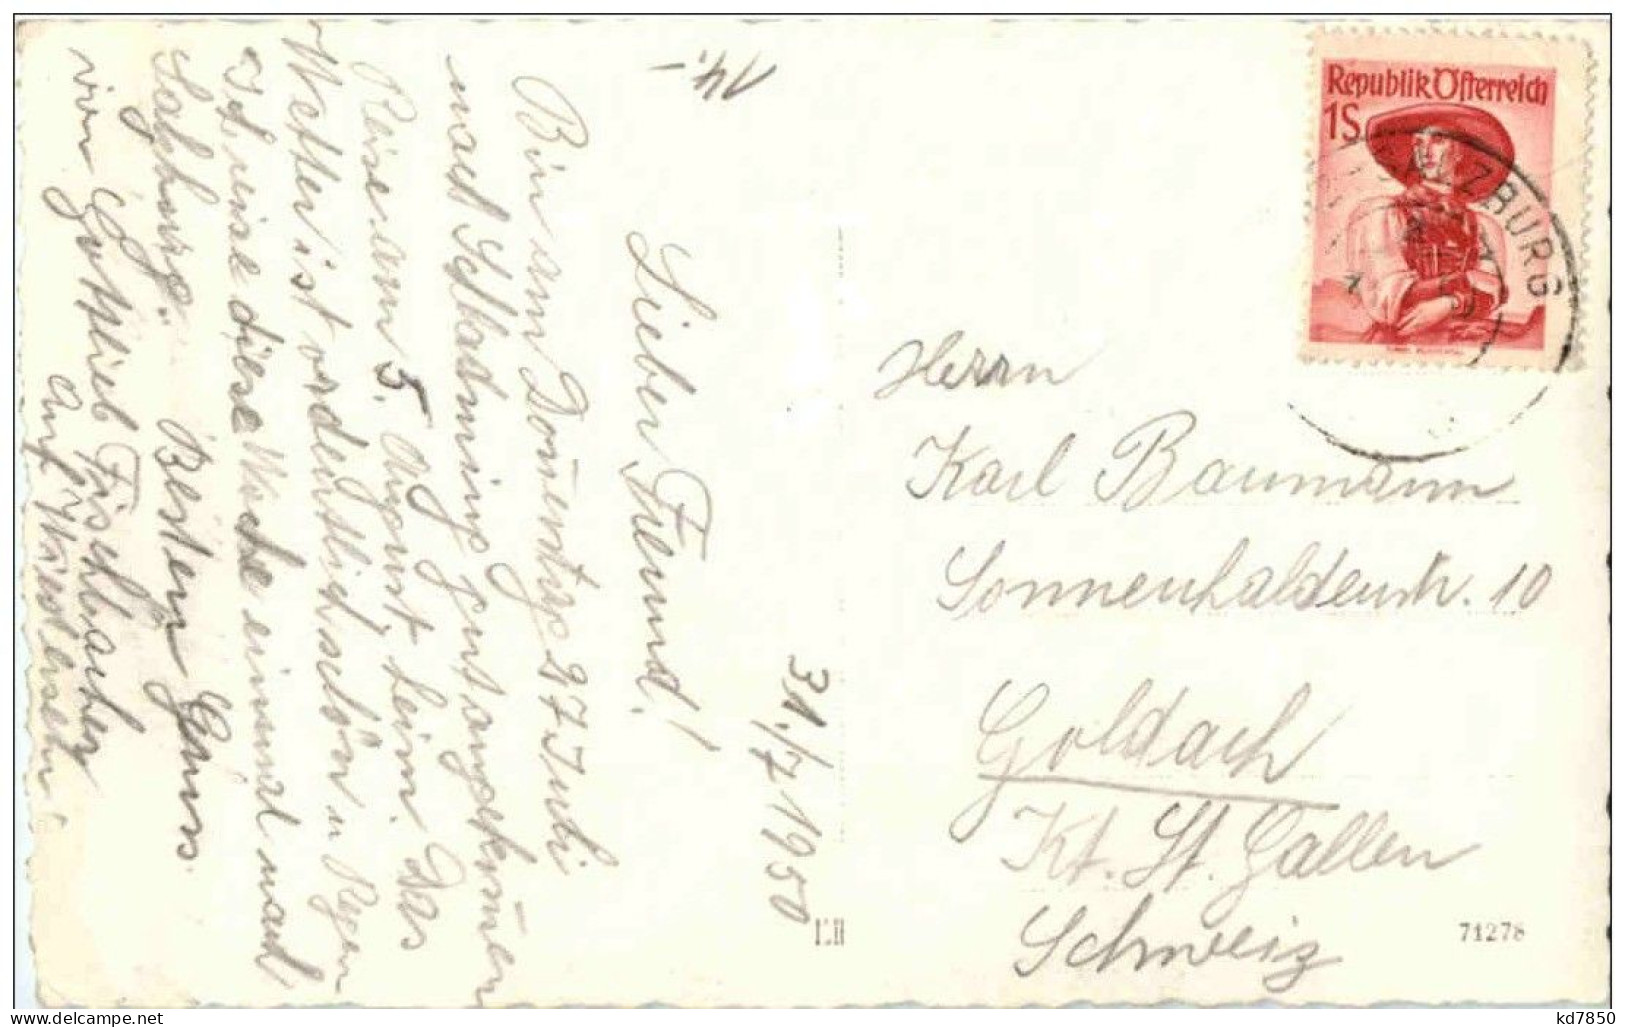 14.-
31./7 1950
Lieber Freund!
Bin am Donnerstag 27 Juli
nach Schladming gut angekommen
Reise am 5. August heim. Das
Wetter ist ordentlich schön u Regen
Ich reise diese Woche einmal nach
Salzburg. Besten Gruss
von Gottlieb Fischbacher
Auf Wiedersehn
Republik Österreich
1S
SALZBURG
Herrn
Karl Baumann
Sonnenhaldenstr. 10
Goldach
Kt. St. Gallen
Schweiz
71278
delcampe.net
kd7850